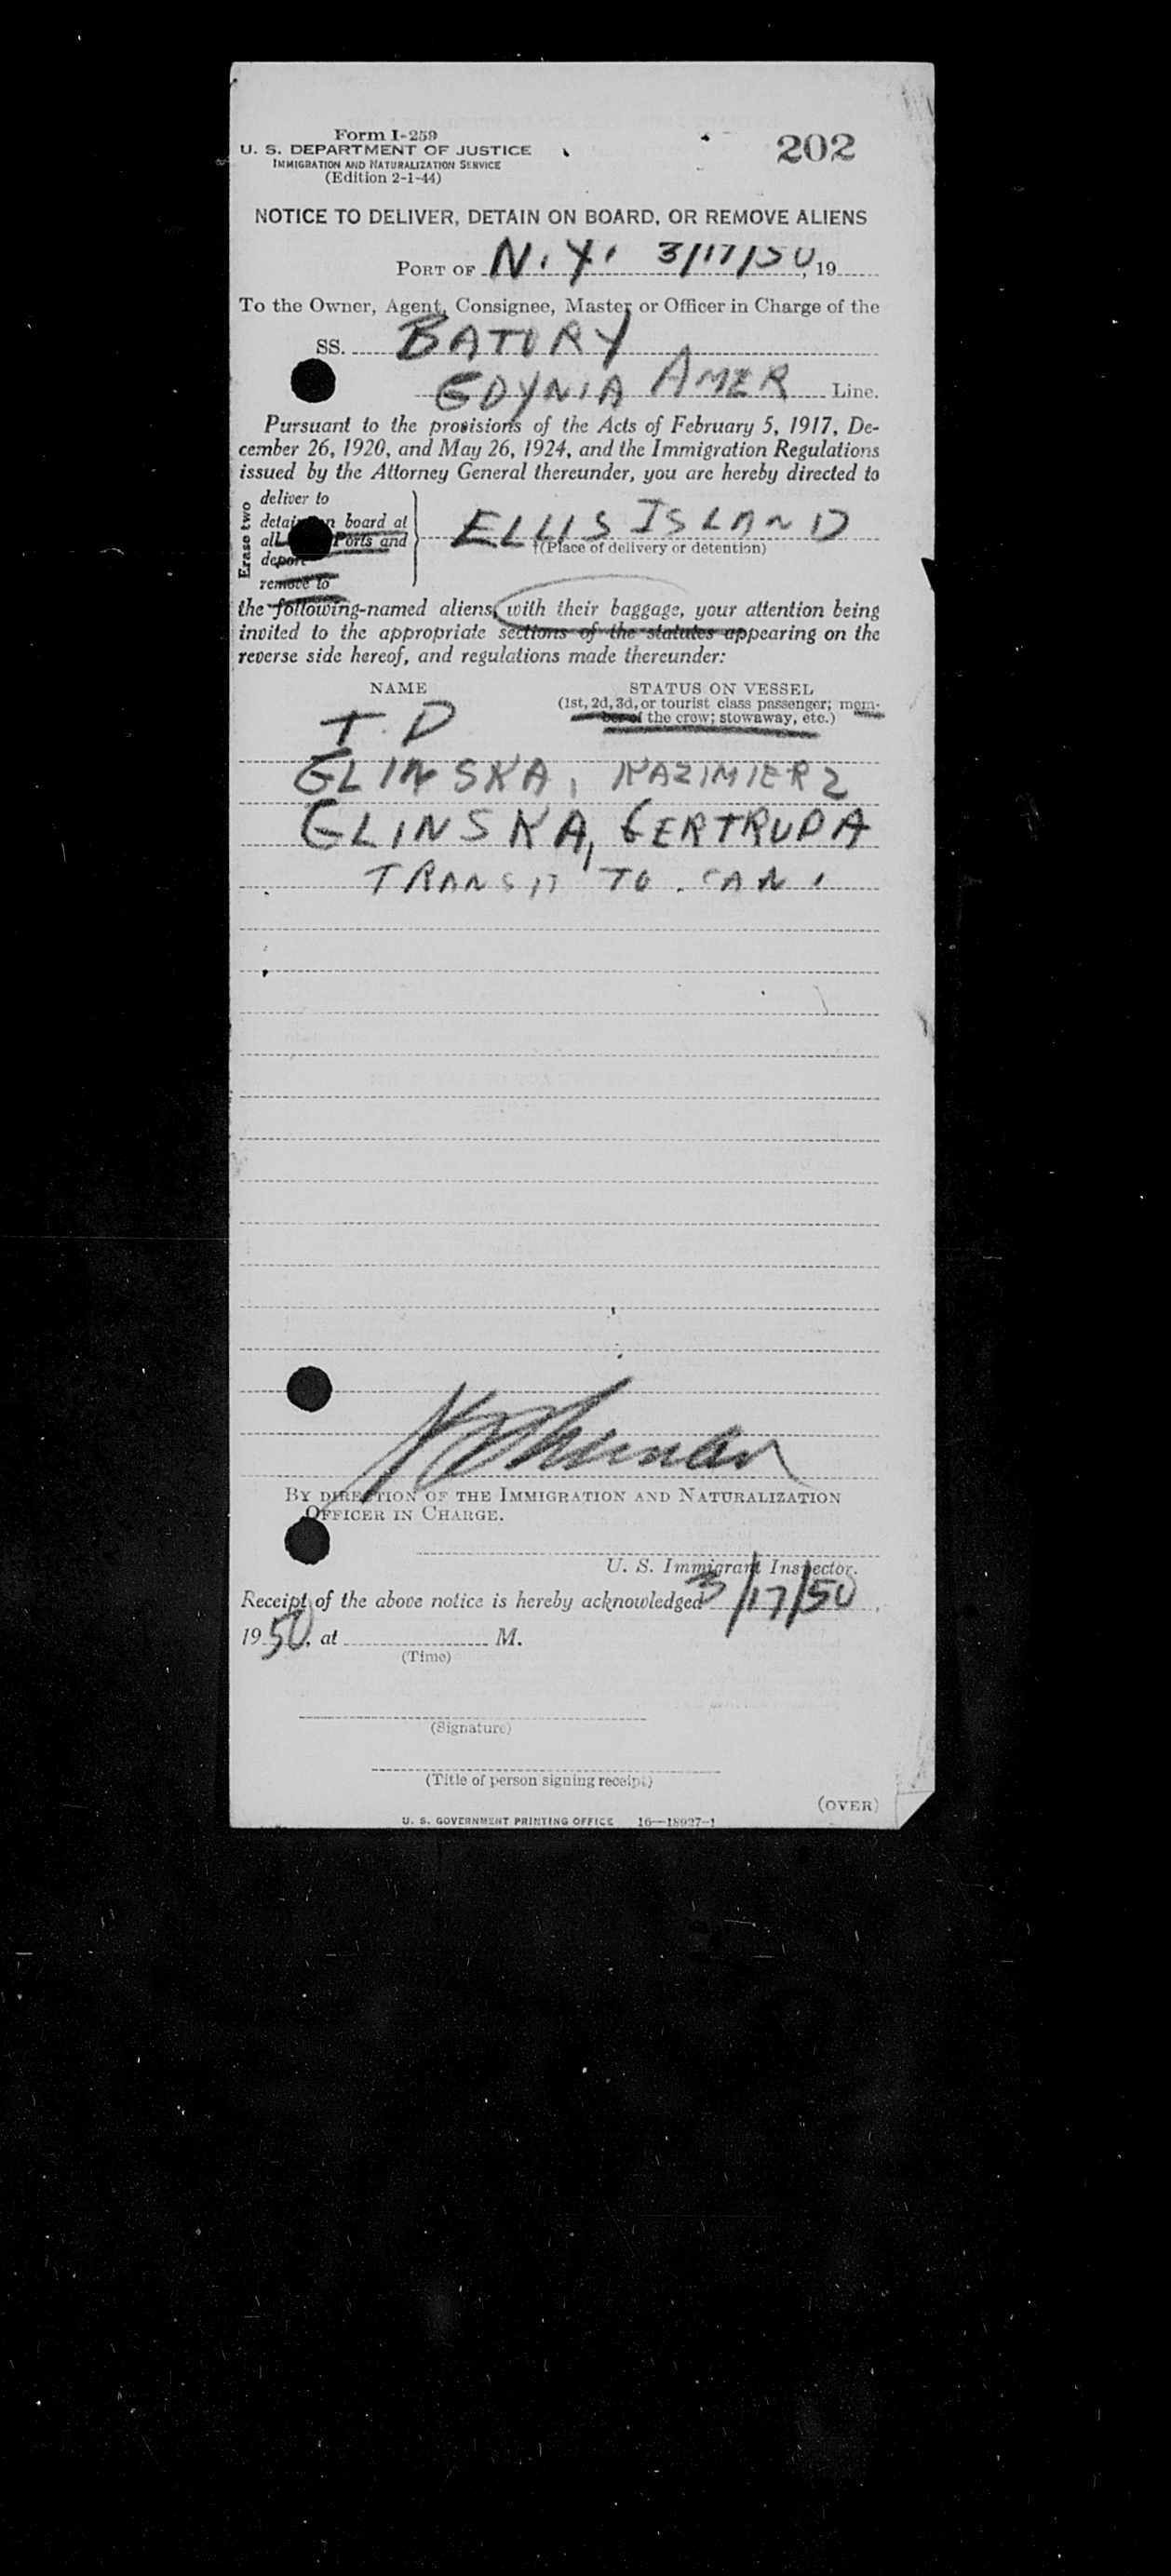 Form I-259
U. S. DEPARTMENT OF JUSTICE
IMMIGRATION AND NATURALIZATION SERVICE
(Edition 2-1-44)
202
NOTICE TO DELIVER, DETAIN ON BOARD, OR REMOVE ALIENS
PORT OF N.Y. 3/17/50, 19
To the Owner, Agent, Consignee, Master or Officer in Charge of the
SS. BATORY
GDYNIA AMER Line.
Pursuant to the provisions of the Acts of February 5, 1917, De-
cember 26, 1920, and May 26, 1924, and the Immigration Regulations
issued by the Attorney General thereunder, you are hereby directed to
Erase two
deliver to
detain on board at
all Ports and
deport
remove to
ELLIS ISLAND
(Place of delivery or detention)
the following-named aliens, with their baggage, your attention being
invited to the appropriate sections of the statutes appearing on the
reverse side hereof, and regulations made thereunder:
NAME
STATUS ON VESSEL
(1st, 2d, 3d, or tourist class passenger; mem-
ber of the crew; stowaway, etc.)
T.D
GLINSKA, KAZIMIERZ
GLINSKA, GERTRUDA
TRANSIT TO CAN.
BY DIRECTION OF THE IMMIGRATION AND NATURALIZATION
OFFICER IN CHARGE.
U. S. Immigrant Inspector.
Receipt of the above notice is hereby acknowledged 3/17/50,
1950, at M.
(Time)
(Signature)
(Title of person signing receipt)
(OVER)
U. S. GOVERNMENT PRINTING OFFICE 16—18027-1